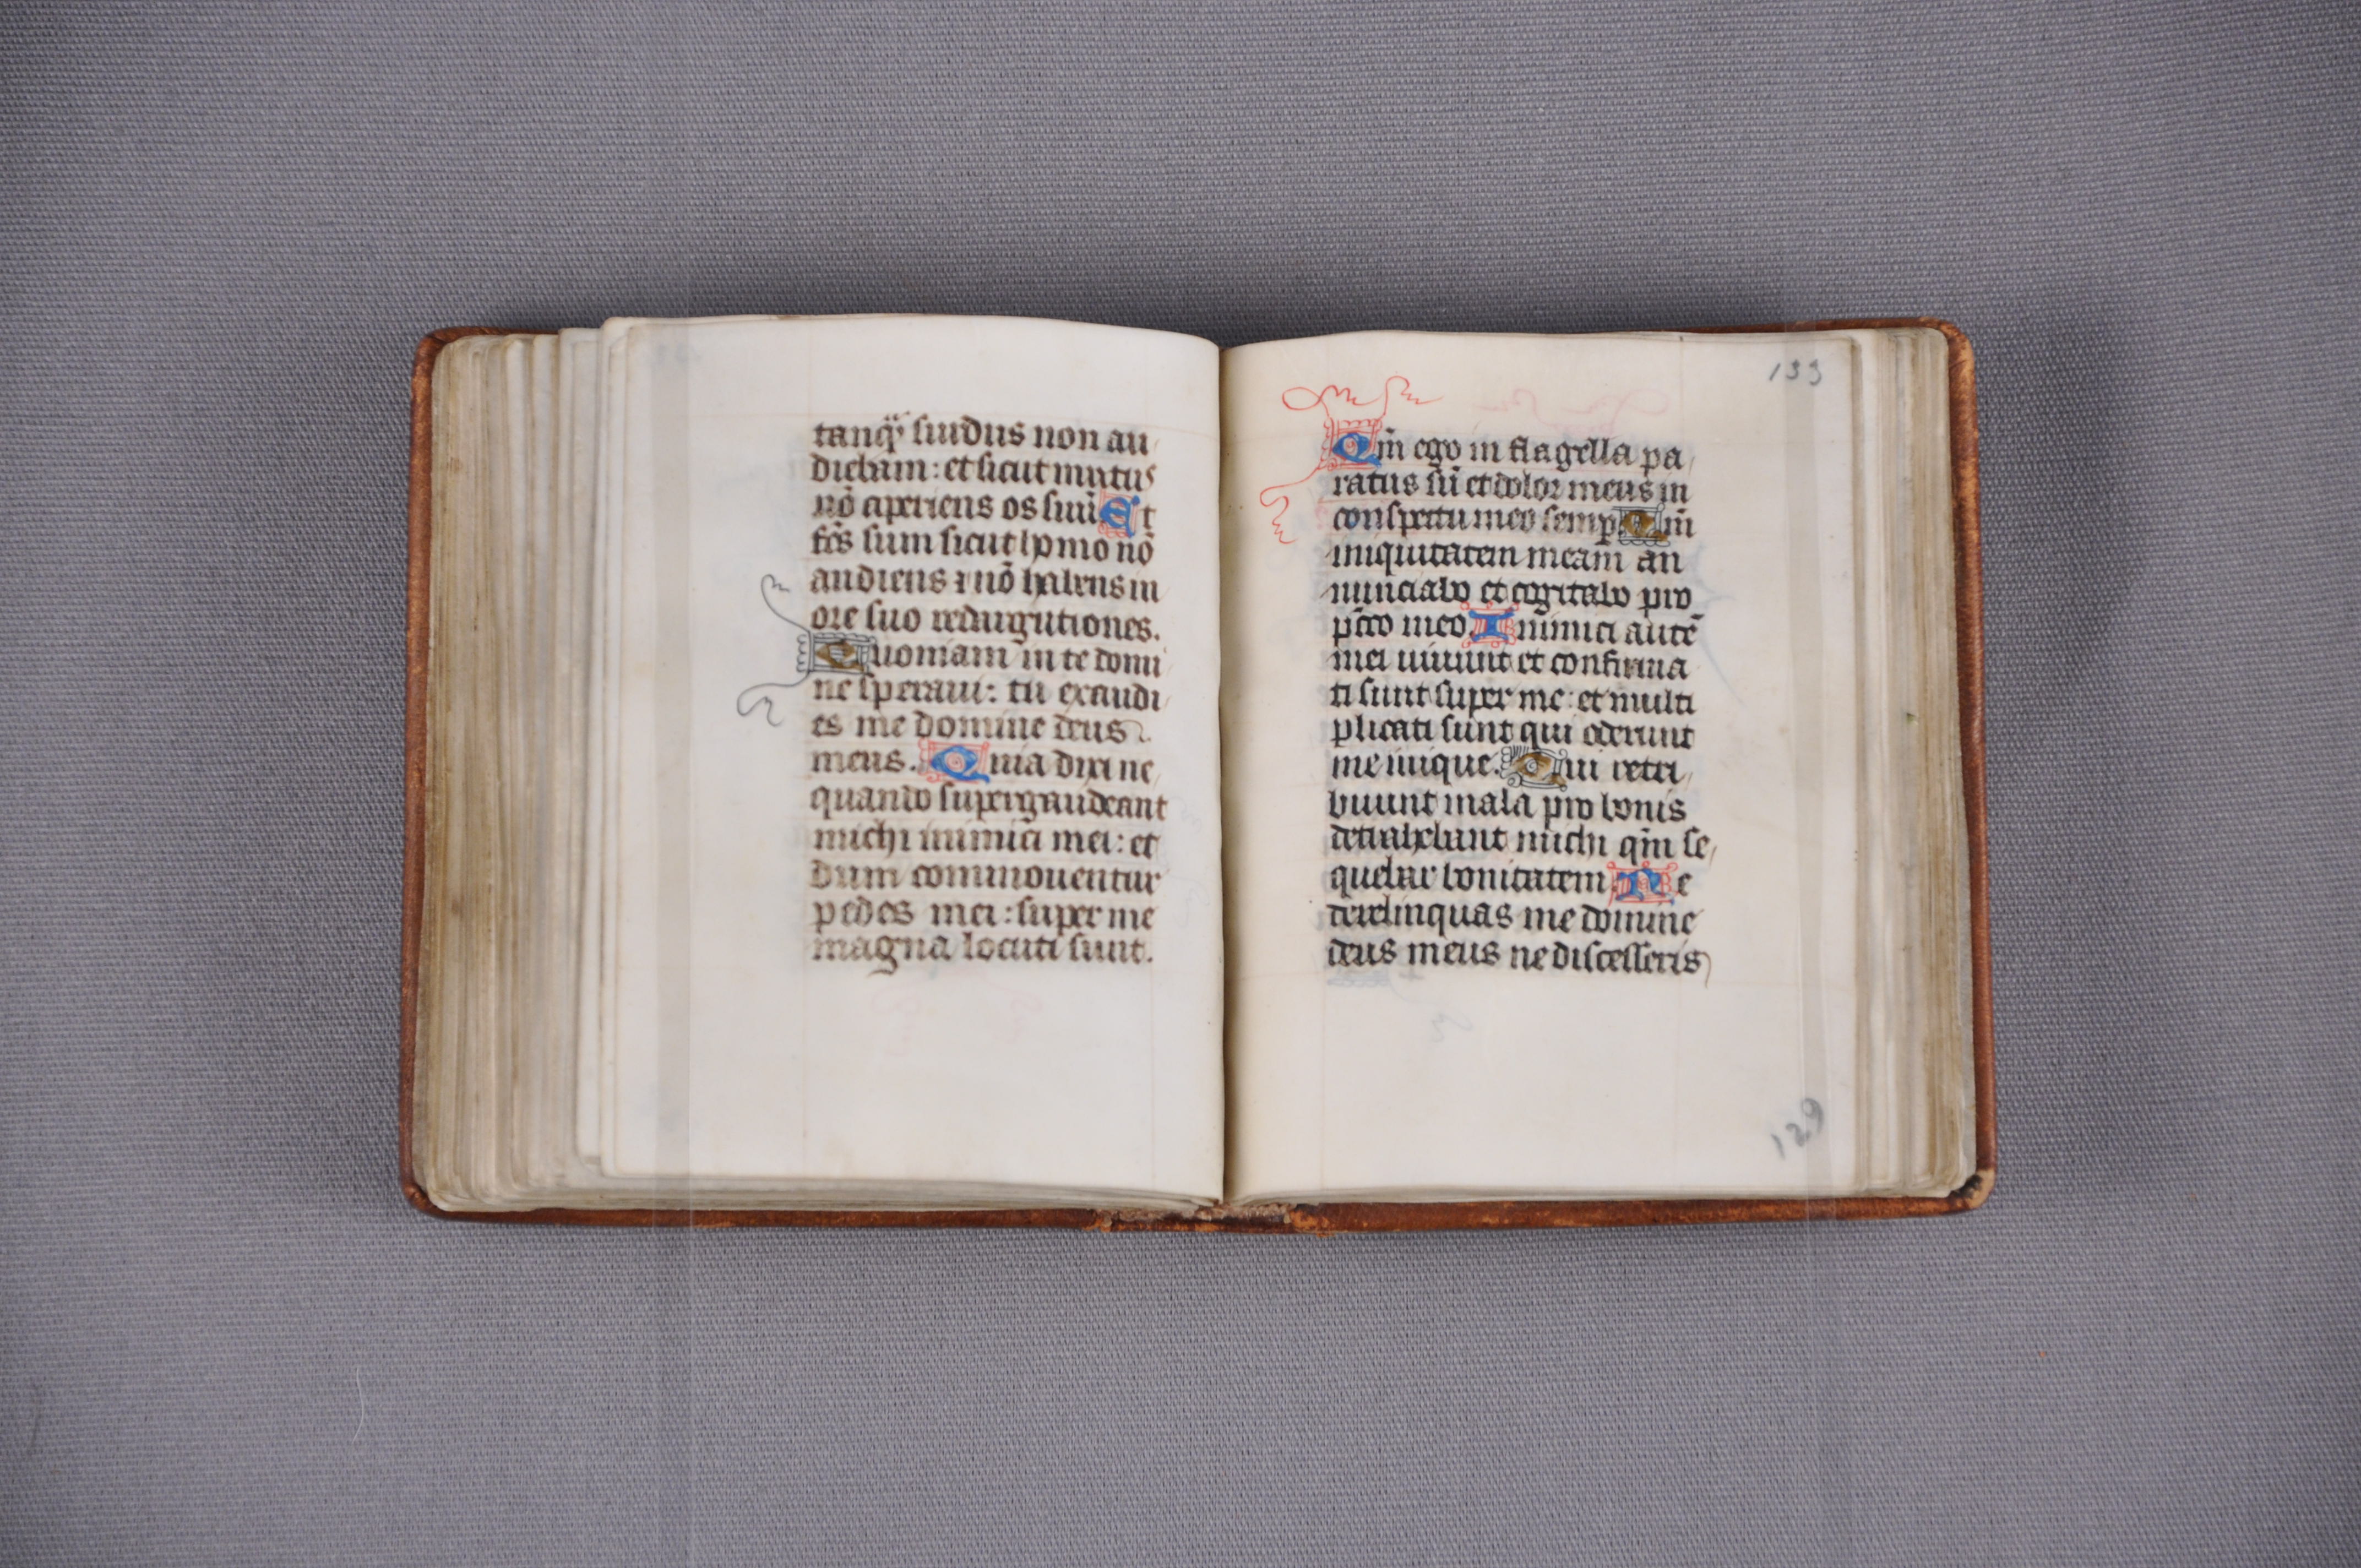 tanqᷓ surdus non au
diebam: et sicut mutus
nō aperiens os suū Et
fc̄s sum sicut homo nō
audiens ⁊ nō habens in
ore suo redargutiones.
Quoniam in te domi
ne speraui: tu exaudi
es me domine deus
meus. Quia dixi ne
quando supergaudeant
michi inimici mei: et
dum commouentur
pedes mei: super me
magna locuti sunt.
133
Qm̄ ego in flagella pa
ratus sū et dolor meus in
conspectu meo semp̄ Qm̄
iniquitatem meam an
nunciabo et cogitabo pro
pc̄cō meo. Inimici autē
mei uiuunt et confirma
ti sunt super me: et multi
plicati sunt qui oderunt
me inique. Qui retri
buunt mala pro bonis
detrahebant michi qm̄ se
quebar bonitatem. Ne
derelinquas me domine
deus meus ne discesseris
129